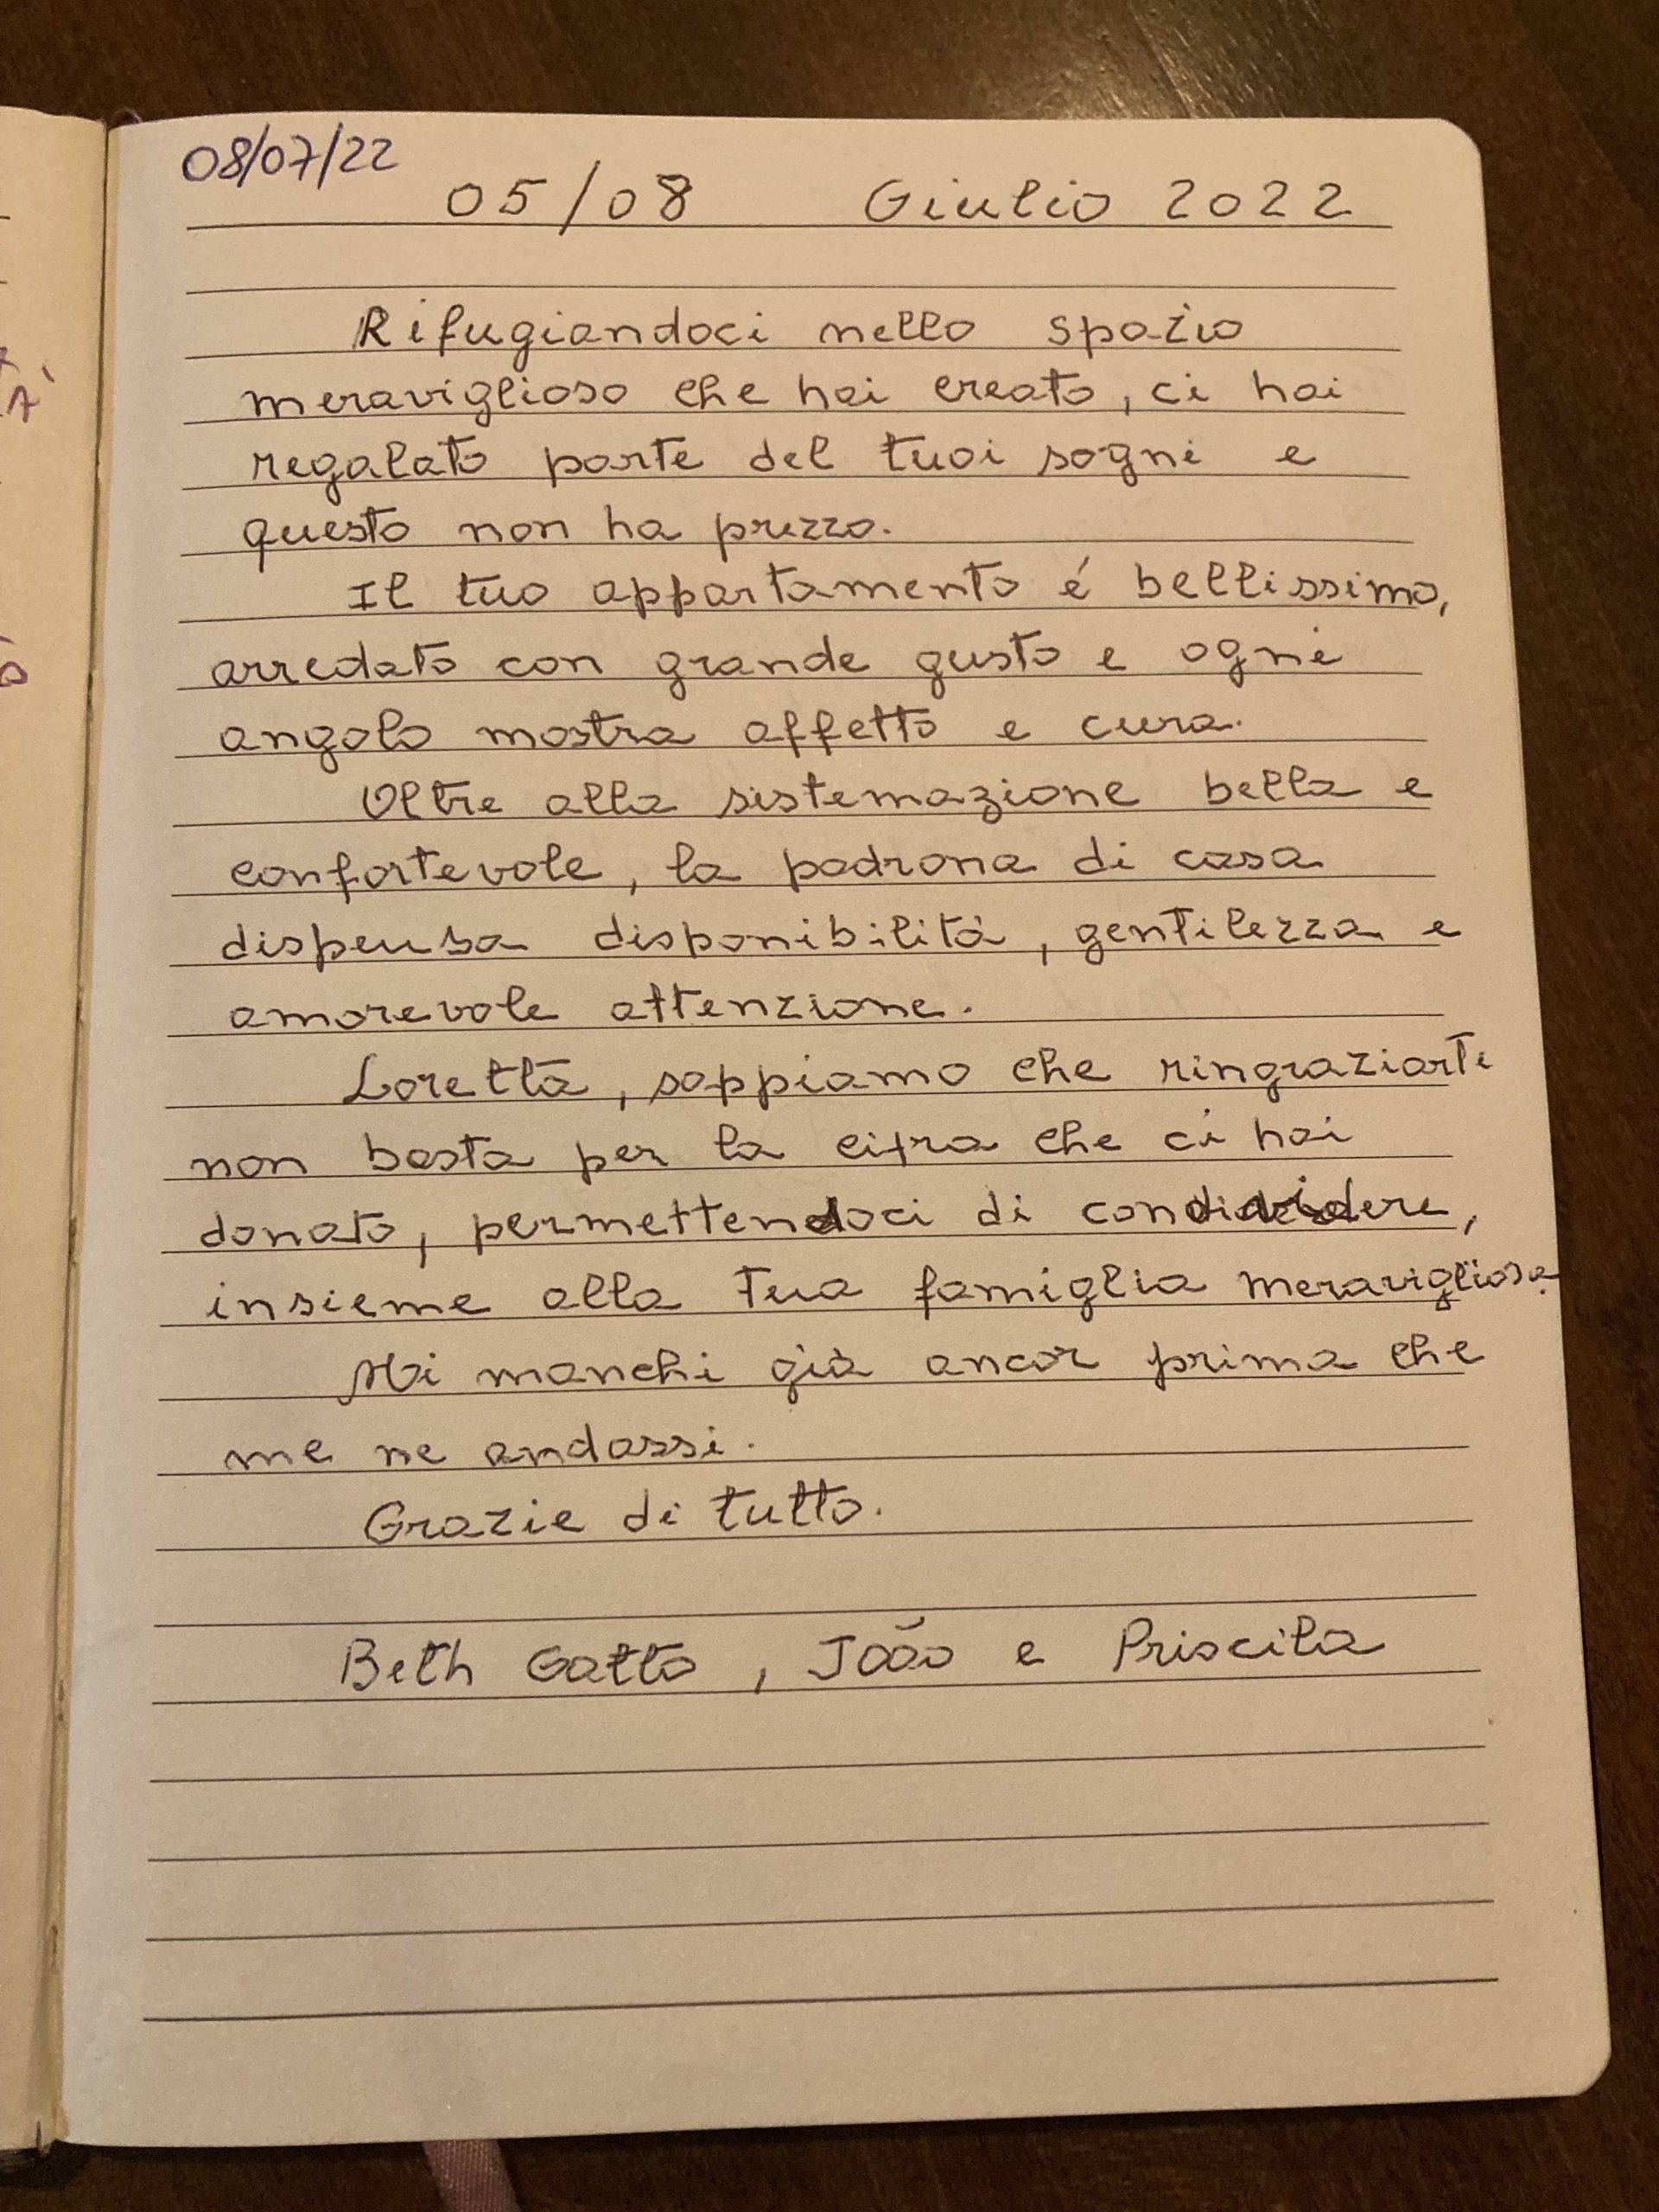 08/07/22
05/08 Giulio 2022
Rifugiandoci nello spazio
meraviglioso che hai creato, ci hai
regalato parte del tuoi sogni e
questo non ha prezzo.
Il tuo appartamento é bellissimo,
arredato con grande gusto e ogni
angolo mostra affetto e cura.
Oltre alla sistemazione bella e
confortevole, la padrona di casa
dispensa disponibilità, gentilezza e
amorevole attenzione.
Loretta, sappiamo che ringraziarti
non basta per la cifra che ci hai
donato, permettendoci di condividere,
insieme alla tua famiglia meravigliosa.
Mi manchi già ancor prima che
me ne andassi.
Grazie di tutto.
Beth Gatto, João e Priscila